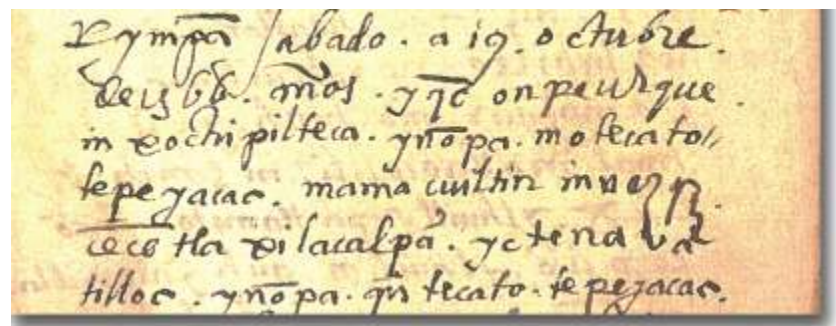 ympā sabado . a 19 . octubre .
de 1566 . años . y q̄c onpeuhque .
in xochipilteca . ynōpa . motecato//
tepeyacac . mamacuiltin
tlaxilacalpā . yc tenava
tilloc . ynōpa . qn tecato . tepeyacac .